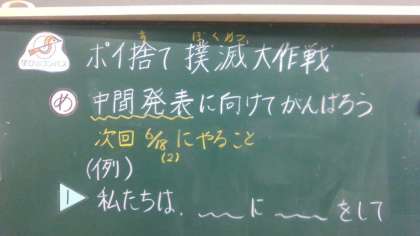 ポイ捨て撲滅大作戦
め 中間発表に向けてがんばろう
次回 6/18 にやること
(2)
(例)
1 私たちは、〜〜に〜〜をして